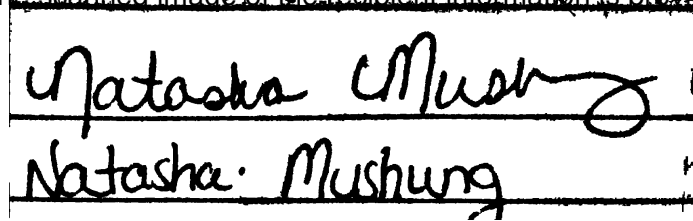 Natasha Mush
Natasha. Mushung